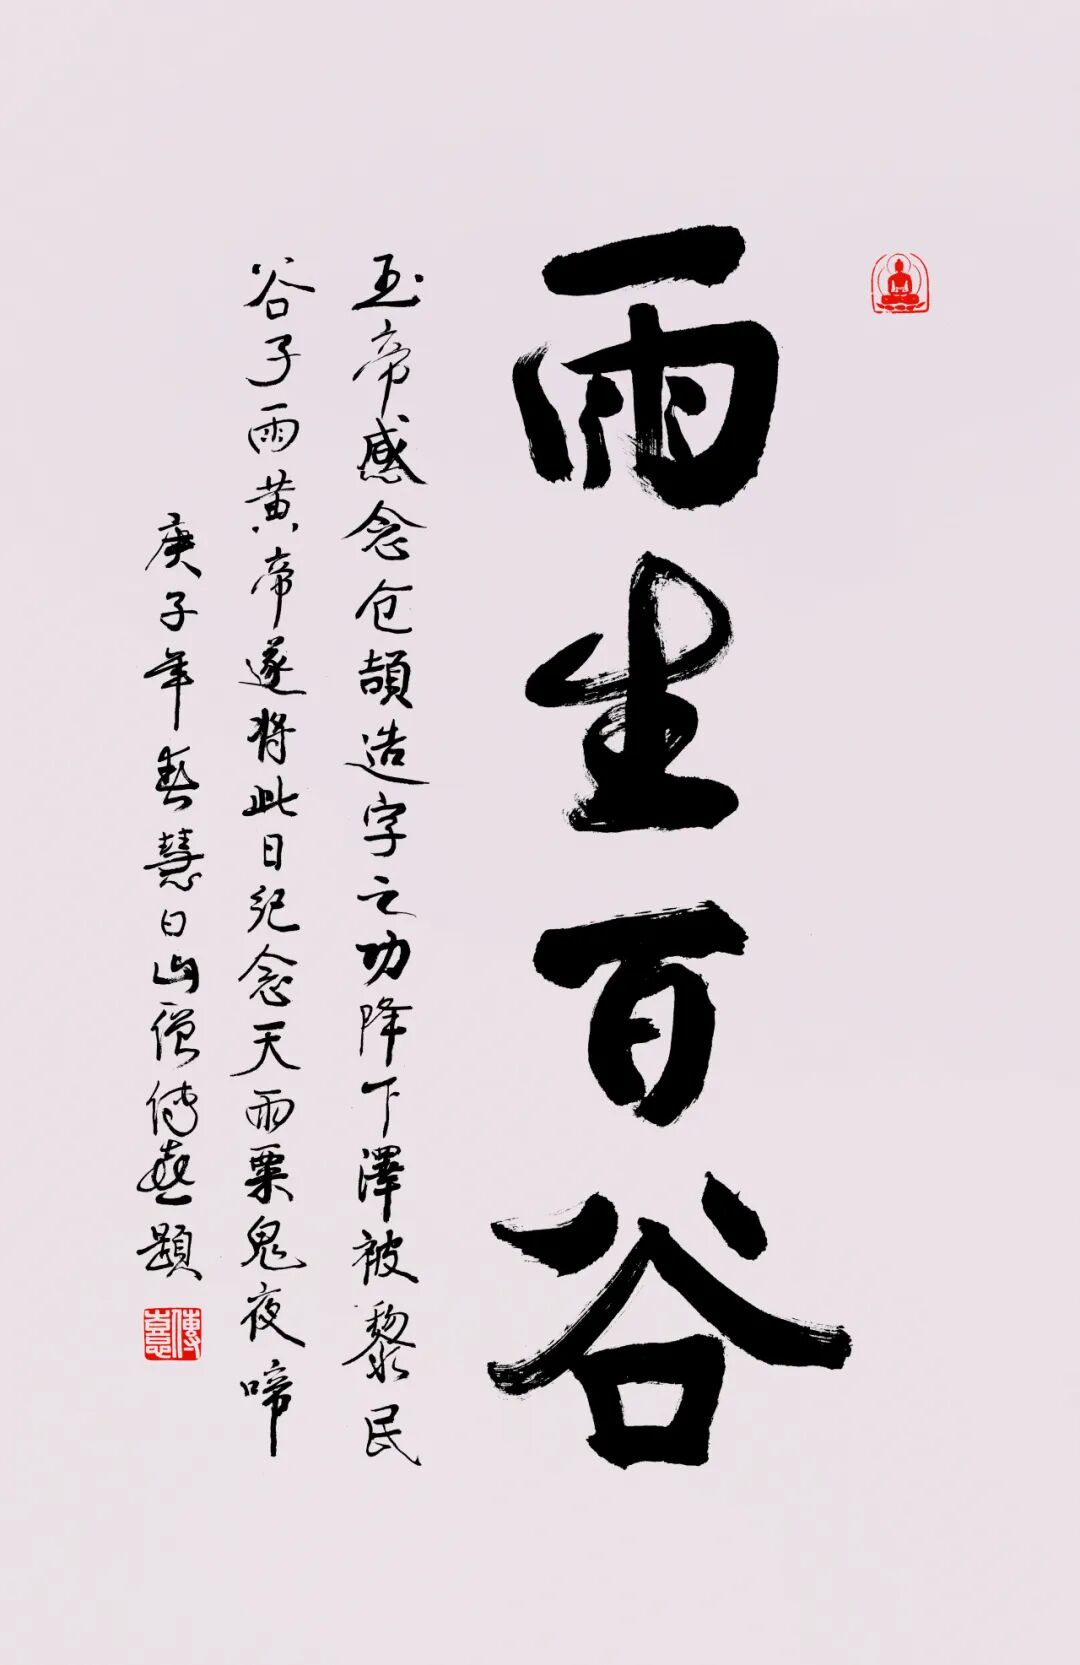 雨生百谷
玉帝感念仓颉造字之功降下泽被黎民
谷子雨黄帝遂将此日纪念天雨粟鬼夜啼
庚子年春慧日山僧传喜题
傳喜